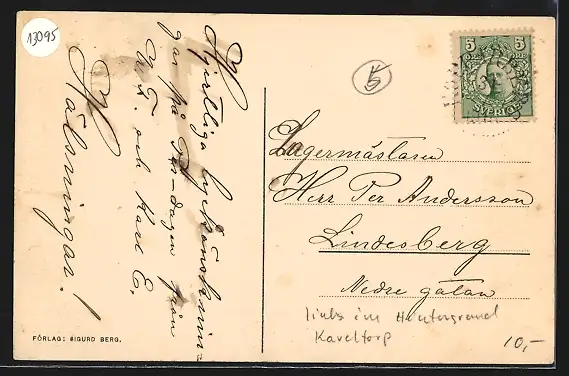 13095
Hjertliga lyckönsknin-
gar på Per-dagen från
K. F. och Karl E.
Hälsningar!
FÖRLAG: SIGURD BERG.
5
5 5
SVERIGE
Lagermästaren
Herr Per Andersson
Lindesberg
Nedre gatan
links im Hintergrund
Kaveltorp
10,-